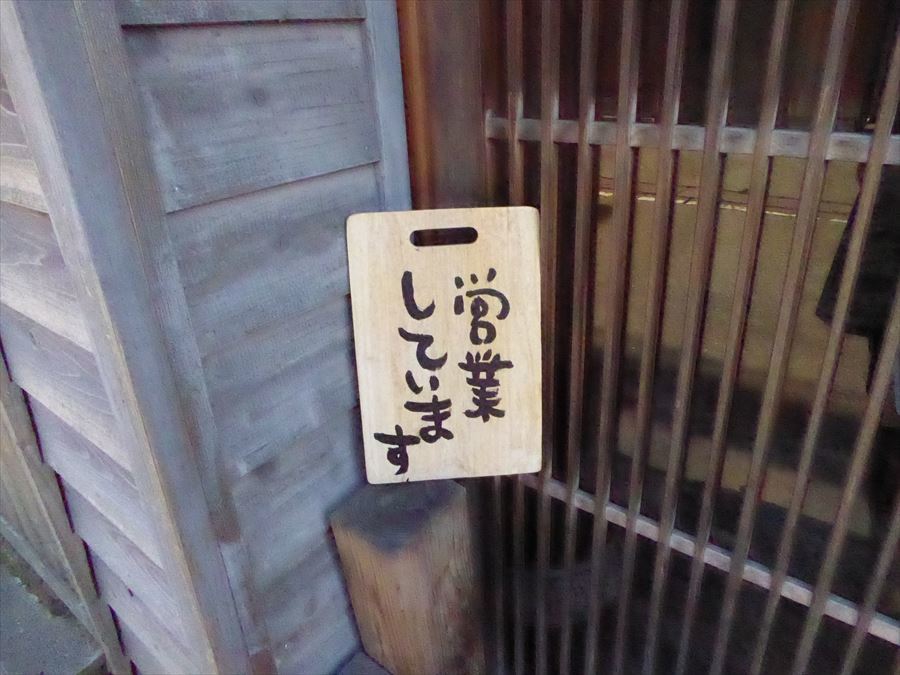 営業
しています